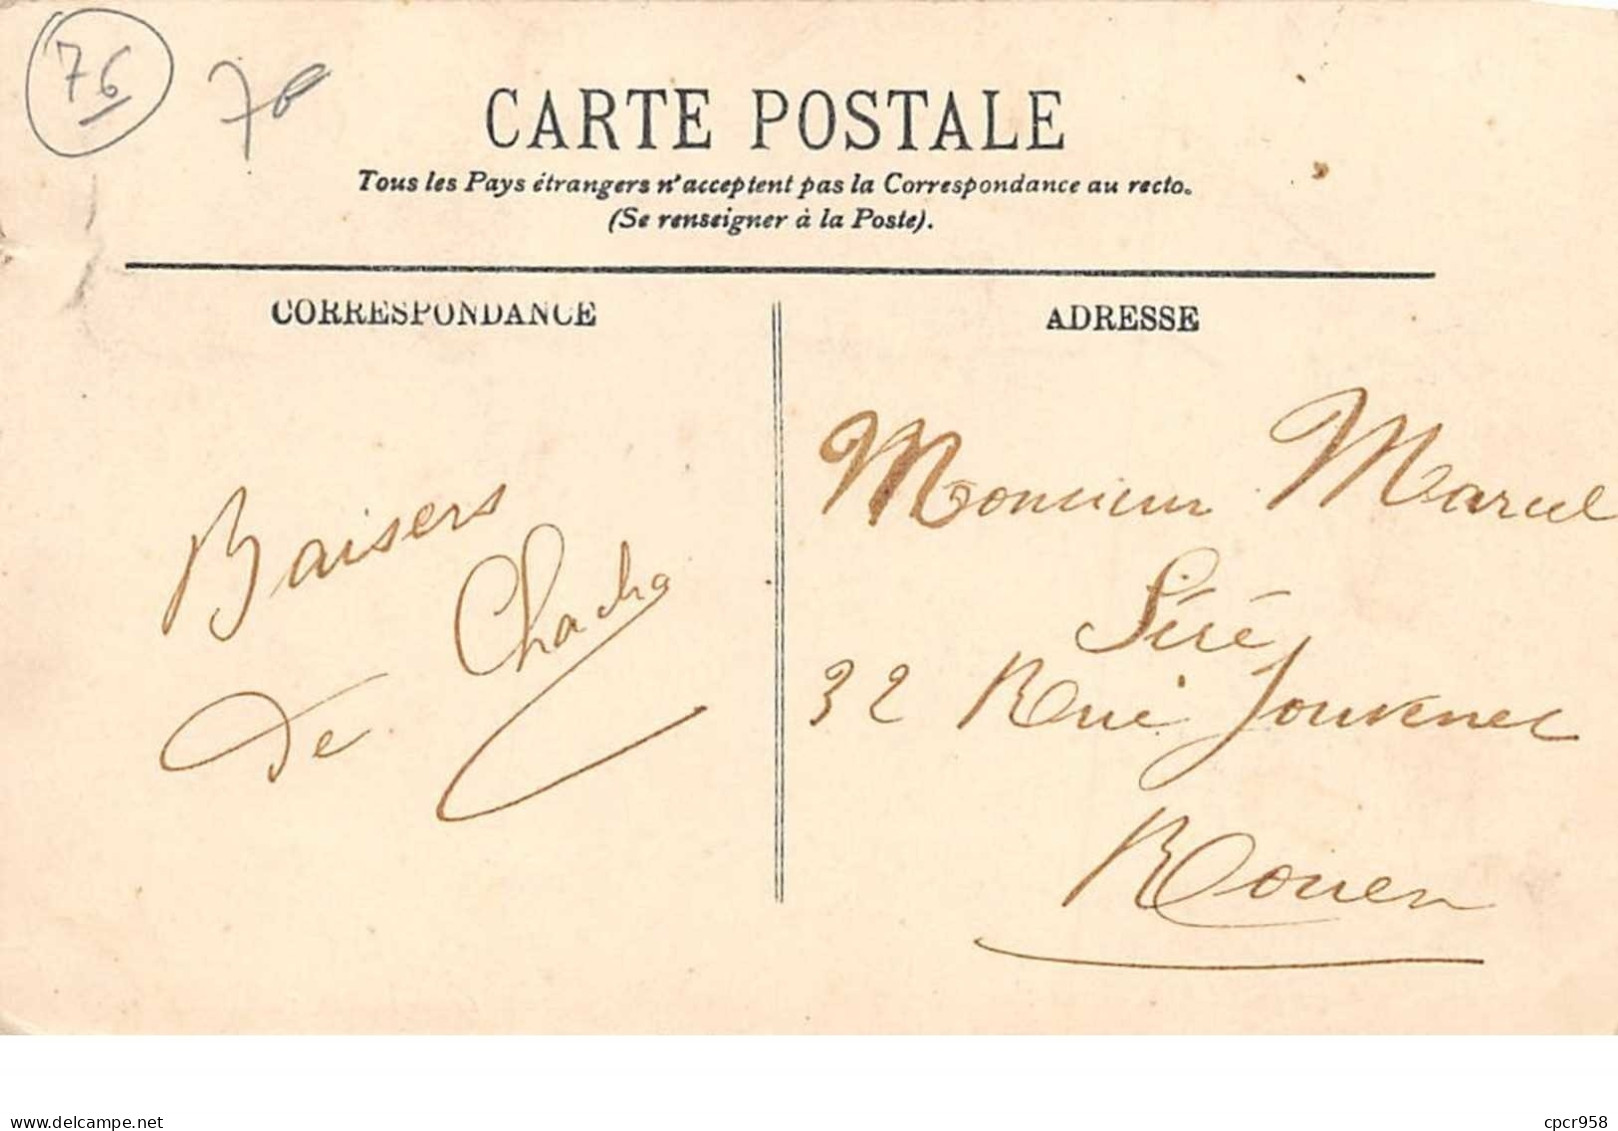 76
70
CARTE POSTALE
Tous les Pays étrangers n'acceptent pas la Correspondance au recto.
(Se renseigner à la Poste).
CORRESPONDANCE
Baisers
de Chacha
ADRESSE
Monsieur Marcel
Séré
32 Rue Jouvenet
Rouen
delcampe.net
cpcr958